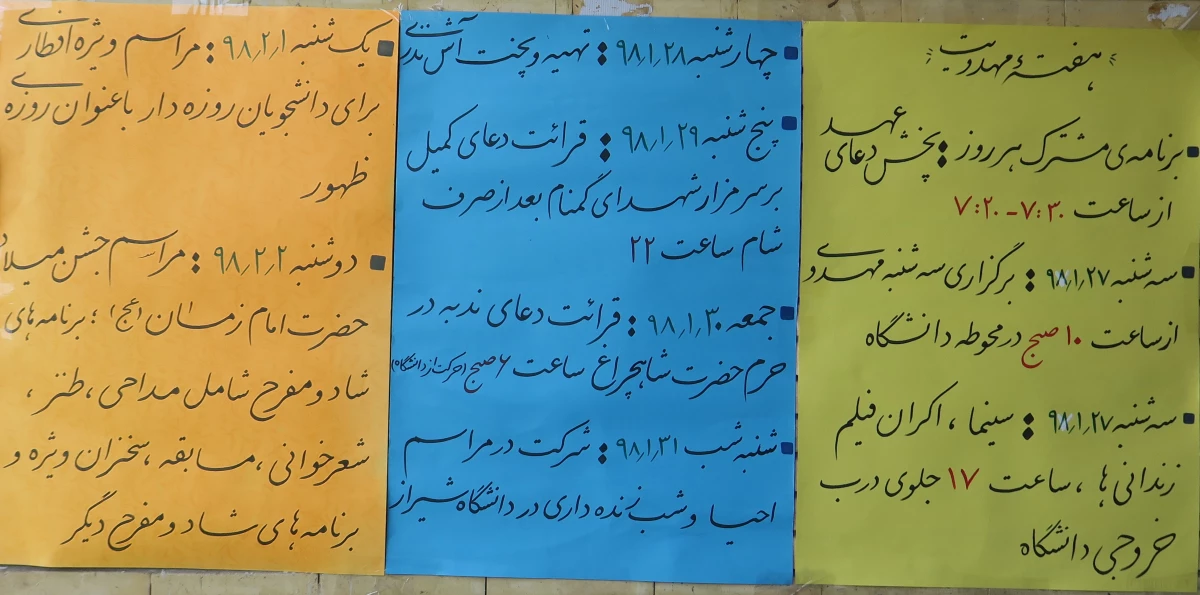 هفتهٔ مهدویت
برنامه‌ی مشترک هر روز : پخش دعای عهد
از ساعت ۷:۳۰ - ۷:۲۰
سه شنبه ۹۸٫۱٫۲۷ : برگزاری سه شنبه مهدوی
از ساعت ۱۰ صبح در محوطه دانشگاه
سه شنبه ۹۸٫۱٫۲۷ : سینما ، اکران فیلم
زندانی ها ، ساعت ۱۷ جلوی درب
خروجی دانشگاه
چهارشنبه ۹۸٫۱٫۲۸ : تهیه و پخت آش نذری
پنج شنبه ۹۸٫۱٫۲۹ : قرائت دعای کمیل
بر سر مزار شهدای گمنام بعد از صرف
شام ساعت ۲۲
جمعه ۹۸٫۱٫۳۰ : قرائت دعای ندبه در
حرم حضرت شاهچراغ ساعت ۶ صبح (حرکت از دانشگاه)
شنبه شب ۹۸٫۱٫۳۱ : شرکت در مراسم
احیا و شب زنده داری در دانشگاه شیراز
یک شنبه ۹۸٫۲٫۱ : مراسم ویژه افطاری
برای دانشجویان روزه دار با عنوان روزه
ظهور
دوشنبه ۹۸٫۲٫۲ : مراسم جشن میلاد
حضرت امام زمان (عج) ؛ برنامه های
شاد و مفرح شامل مداحی ، طنز ،
شعرخوانی ، مسابقه ، سخنران ویژه و
برنامه های شاد و مفرح دیگر